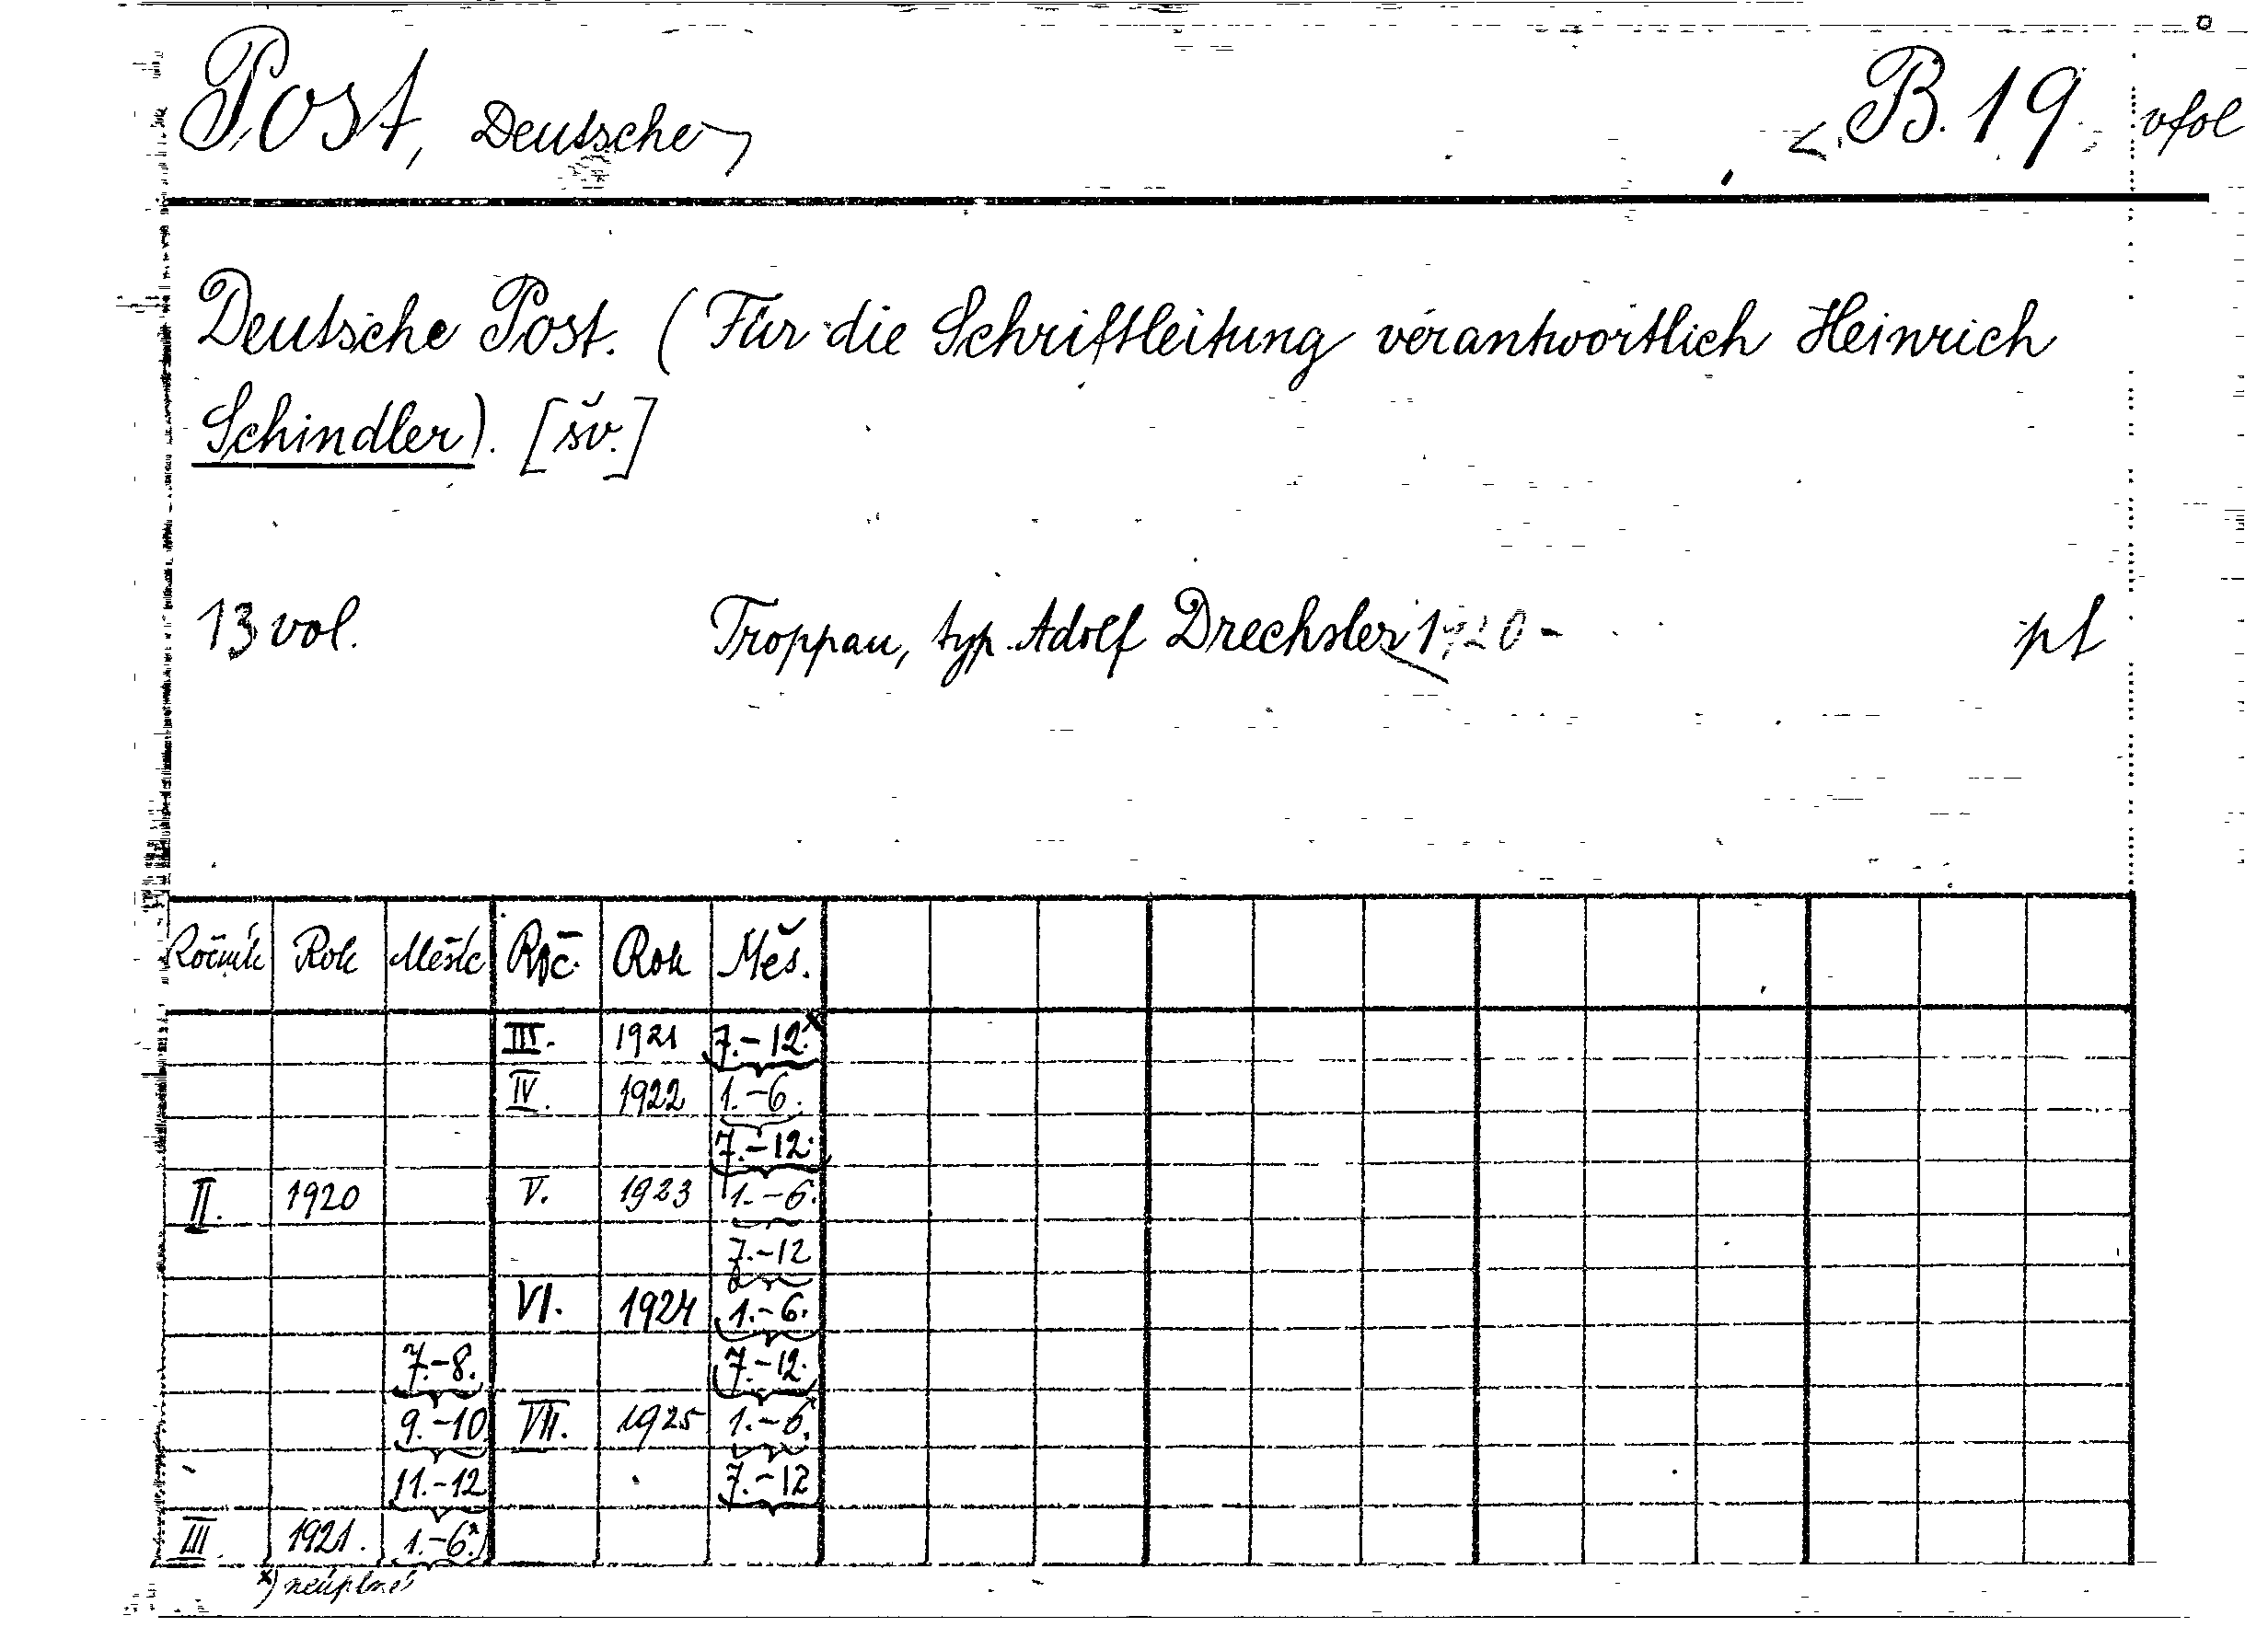 Post, Deutsche, B. 19. vfol
Deutsche Post. (Für die Schriftleitung verantwortlich Heinrich
Schindler). [šv.]
13 vol. Troppau, typ. Adolf Drechsler 1920 - pt
Ročník Rok Měsíc Roč. Rok Měs.
III. 1921 7.-12. x
IV. 1922 1.-6.
7.-12.
II. 1920 V. 1923 1.-6.
7.-12
VI. 1924 1.-6.
7.-8. 7.-12.
9.-10. VII. 1925 1.-6.
11.-12 7.-12
III 1921. 1.-6. x)
x) neúplné